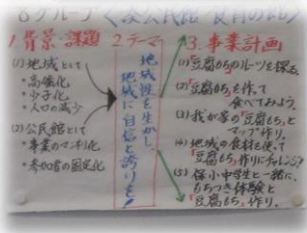 1.背景・課題
(1)地域として
・高齢化
・少子化
・人口の減少
(2)公民館として
・事業のマンネリ化
・参加者の固定化
2.テーマ
地域性を生かし、
地域に自信と誇りを!
3.事業計画
(1)「豆腐もち」のルーツを探る。
(2)「豆腐もち」を作って
食べてみよう
(3)我が家の「豆腐もち」と
マップ作り。
(4)地域の食材を使って
「豆腐もち」作りにチャレンジ
(5)保小中学生と一緒に、
もちつき体験と
「豆腐もち」作り。